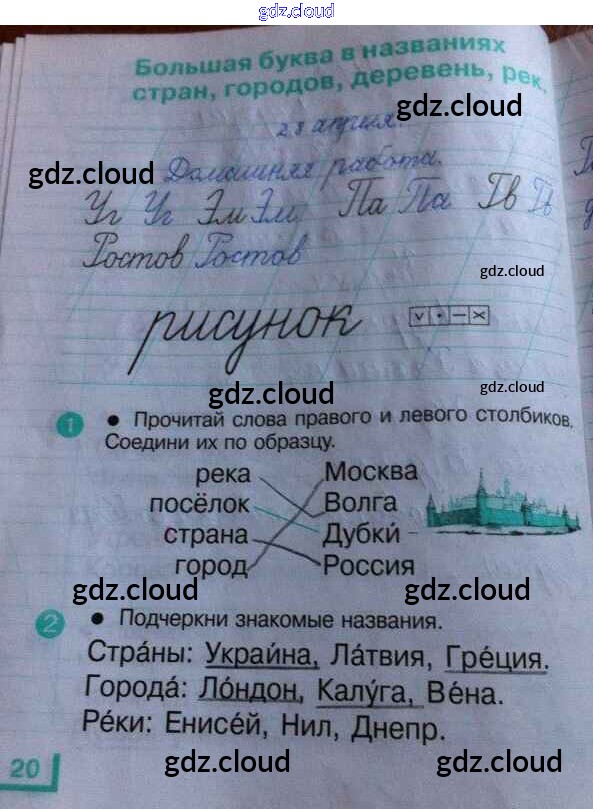 gdz.cloud
Большая буква в названиях
стран, городов, деревень, рек.
gdz.cloud
28 апреля.
gdz.cloud
Домашняя работа.
Уг Уг Эм Эм Па Па Тв Тв
Ростов Ростов
gdz.cloud
рисунок
gdz.cloud
gdz.cloud
1 • Прочитай слова правого и левого столбиков.
Соедини их по образцу.
река Москва
посёлок Волга
страна Дубки́
город Россия
gdz.cloud gdz.cloud
2 • Подчеркни знакомые названия.
Стра́ны: Украи́на, Ла́твия, Гре́ция.
Города́: Ло́ндон, Калу́га, Ве́на.
Ре́ки: Енисе́й, Нил, Днепр.
20
gdz.cloud gdz.cloud